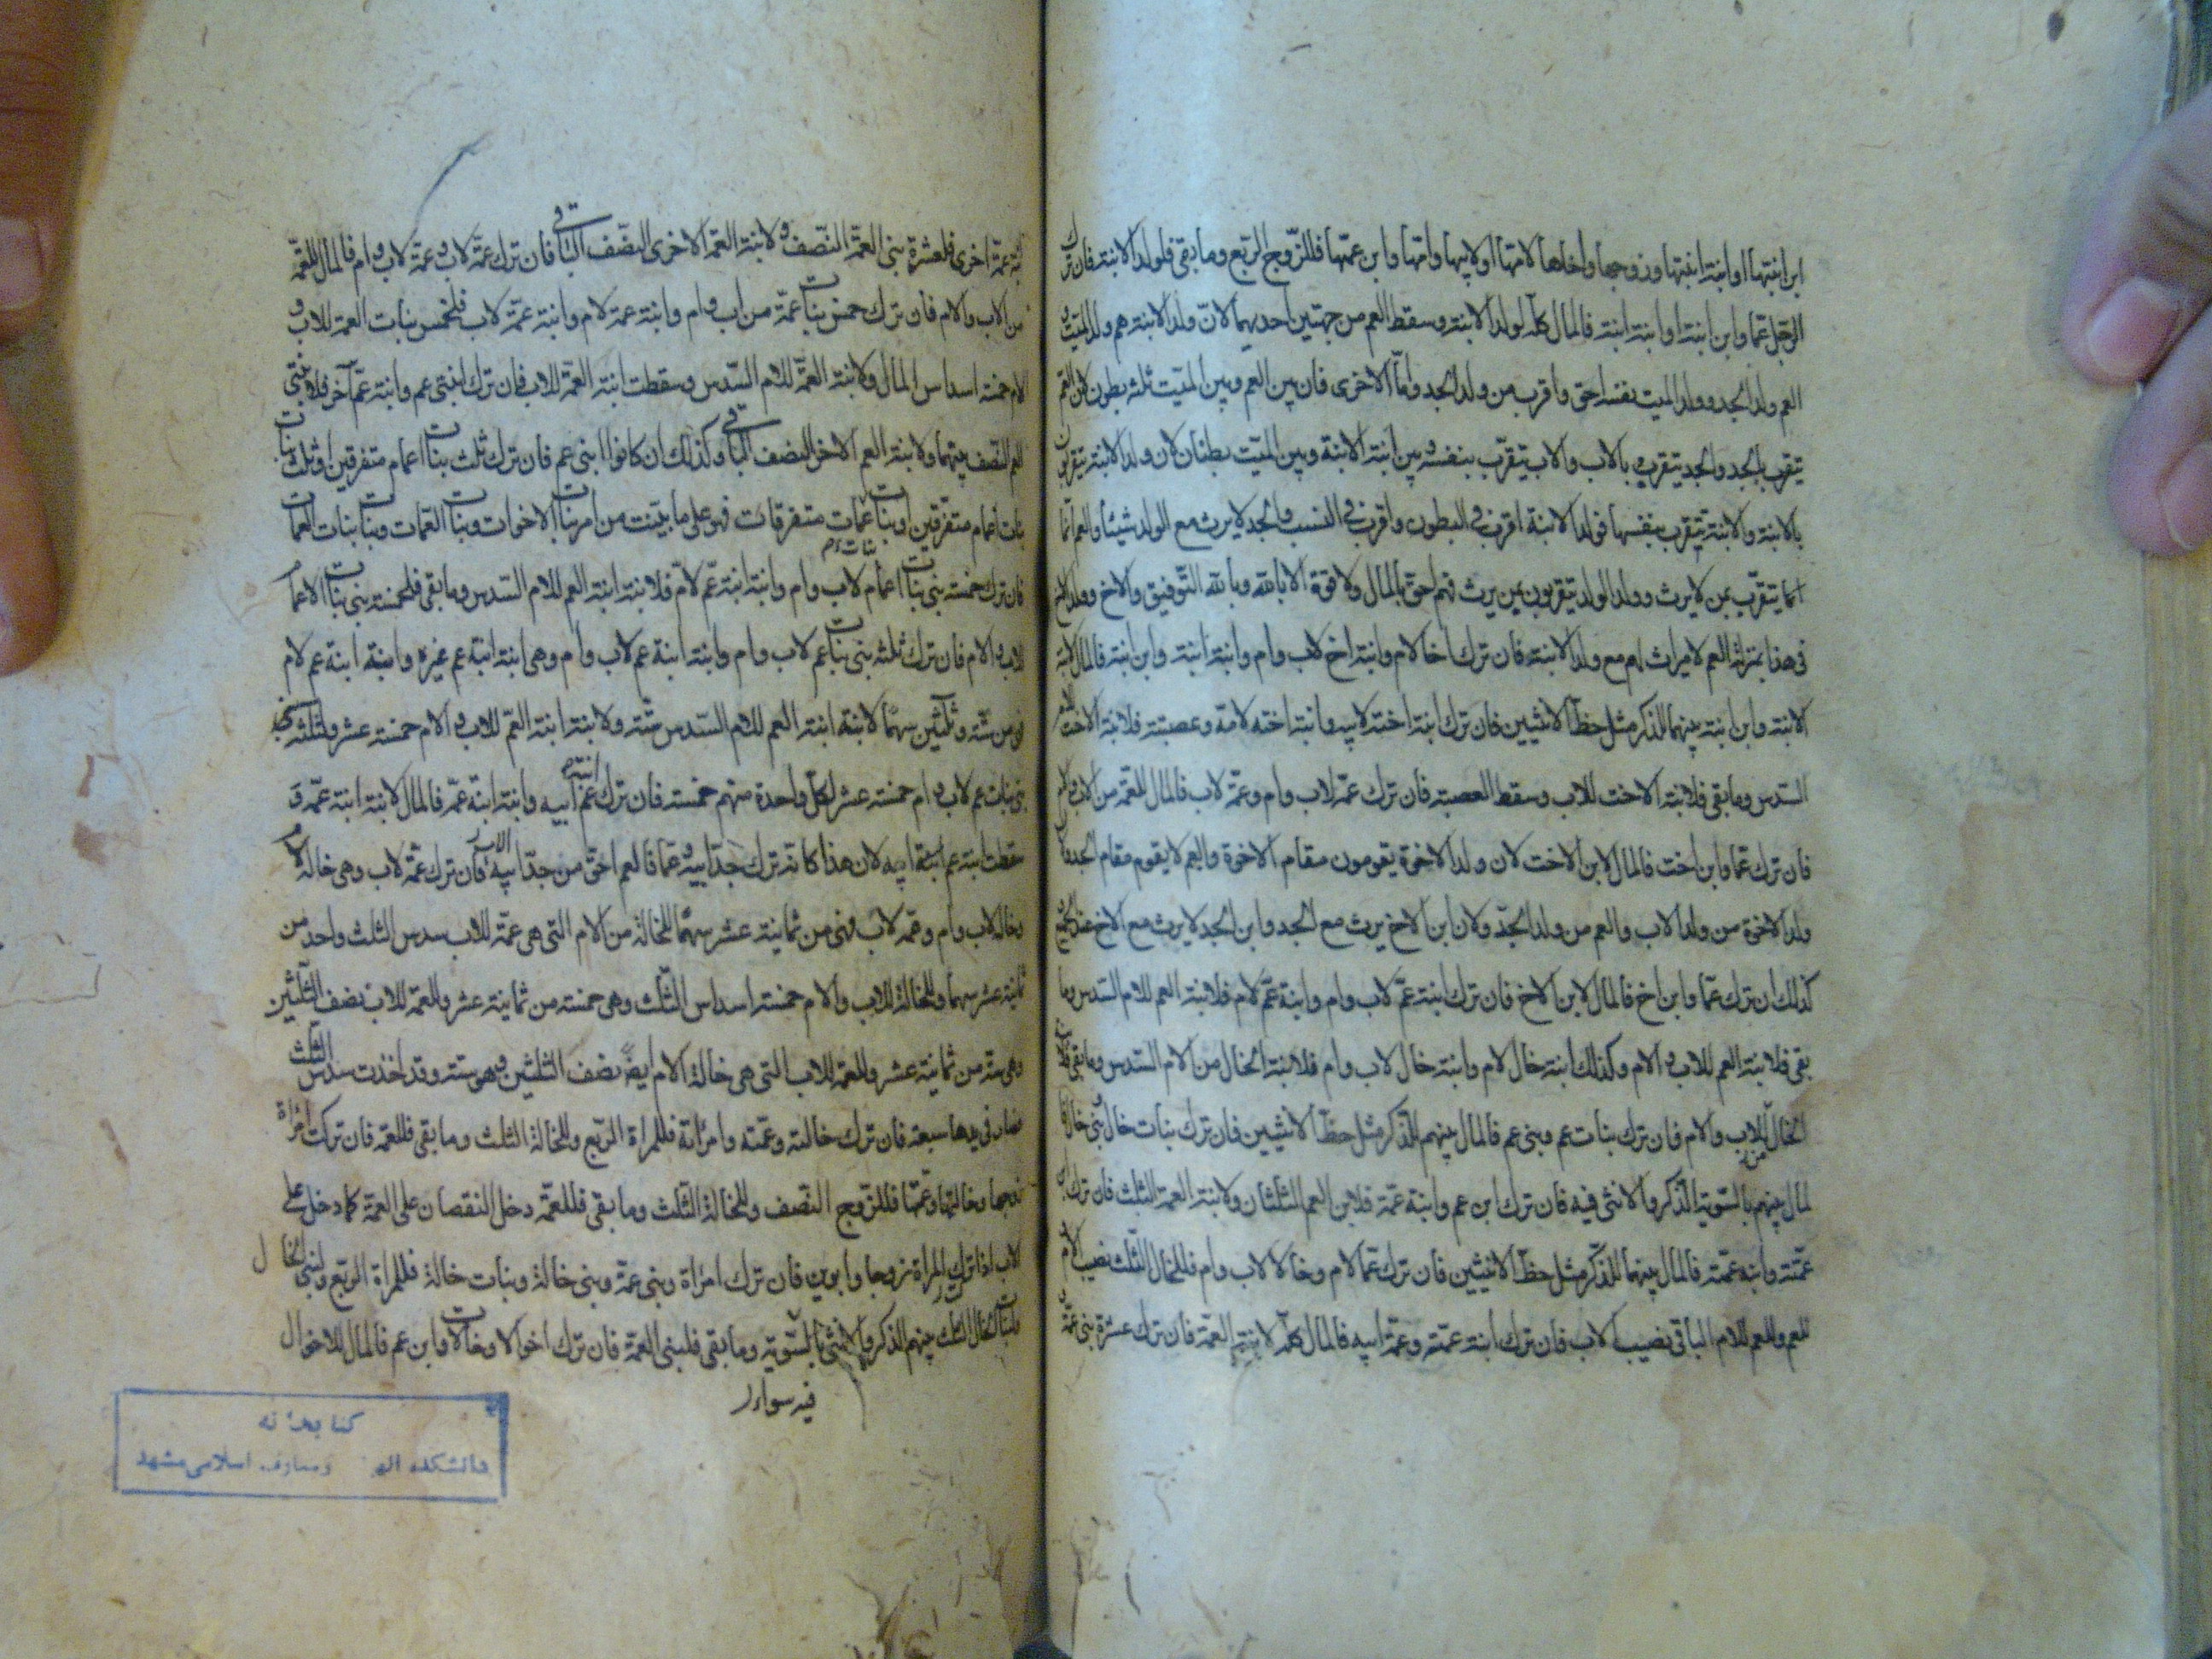 ابن ابنتها او ابنة ابنتها وزوجها واخاها لامها او لابيها وامها وابن عمها فللزوج الربع وما بقى فلولد الابنة فان ترك
الرجل عما وابن ابنة او ابنة ابنة فالمال كله لولد الابنة وسقط العم من جهتين احديهما لان ولد الابنة هم ولد الميت و
العم ولد الجد وولد الميت نفسه احق واقرب من ولد الجد واما الاخرى فان بين العم وبين الميت ثلثه بطون لان العم
يتقرب بالجد والجد يتقرب بالاب والاب يتقرب بنفسه وبين ابنة الابنة وبين الميت بطنان لان ولد الابنة يتقربون
بالابنة والابنة يتقرب بنفسها فولد الابنة اقرب فى البطون واقرب فى النسب والجد لا يرث مع الولد شيئا والعم انما
انما يتقرب بمن لا يرث وولد الولد يتقربون بمن يرث فهم احق بالمال ولا قوة الا بالله وبالله التوفيق والاخ وولد الاخ
فى هذا بمنزلة العم لا ميراث لهم مع ولد الابنة فان ترك اخا لام وابنة اخ لاب وام وابنة ابنة وابن ابنة فالمال لابنة
الابنة وابن ابنة بينهما للذكر مثل حظ الانثيين فان ترك ابنة اخته لابيه وابنة اخته لامه وعصبته فلابنة الاخت للام
السدس وما بقى فلابنة الاخت للاب وسقط العصبة فان ترك عمة لاب وام وعمة لاب فالمال للعمة من الاب والام
فان ترك عما وابن اخت فالمال لابن الاخت لان ولد الاخوة يقومون مقام الاخوة والعم لا يقوم مقام الجد ولان
ولد الاخوة من ولد الاب والعم من ولد الجد ولان ابن الاخ يرث مع الجد وابن الجد لا يرث مع الاخ عند الجميع و
كذلك ان ترك عما وابن اخ فالمال لابن الاخ فان ترك ابنة عم لاب وام وابنة عم لام فلابنة العم للام السدس وما
بقى فلابنة العم للاب والام وكذلك ابنة خال لام وابنة خال لاب وام فلابنة الخال من الام السدس وما بقى فلابنة
الخال للاب والام فان ترك بنات عم وبنى عم فالمال بينهم للذكر مثل حظ الانثيين فان ترك بنات خال وبنى خال
فالمال بينهم بالسوية الذكر والانثى فيه فان ترك ابن عم وابنة عمة فلابن العم الثلثان ولابنة العمة الثلث فان ترك ابن
عمته وابنة عمته فالمال بينهما للذكر مثل حظ الانثيين فان ترك عما لام وخالا لاب وام فللخال الثلث نصيب الام
للعم وللعم للام الباقى نصيب الاب فان ترك ابنة عمته وعمة ابيه فالمال كله لابنة العمة فان ترك عشرة بنى عمة و
ابنة عمة اخرى فلعشرة بنى العمة النصف ولابنة العمة الاخرى النصف الباقى فان ترك عمة لاب وعمة لاب وام فالمال للعمة
من الاب والام فان ترك خمس بنات عمة من اب وام وابنة عمة لام وابنة عمة لاب فلخمس بنات العمة للاب و
الام خمسة اسداس المال ولابنة العمة للام السدس وسقطت ابنة العمة للاب فان ترك ابنتى عم وابنة عم آخر فلابنتى
العم النصف بينهما ولابنة العم الاخر النصف الباقى وكذلك ان كانوا ابنى عم فان ترك ثلث بنات اعمام متفرقين او ثلث بنات
بنات اعمام متفرقين او بنات عمات متفرقات فهو على ما بينت من امر بنات الاخوات وبنات العمات وبنات بنات العمات
فان ترك خمسة بنى بنات اعمام لاب وام وابنة ابنة عم لام فلابنة ابنة العم للام السدس وما بقى فلخمسة بنى بنات الاعمام
للاب والام فان ترك ثلثه بنى بنات عم لاب وام وابنة ابنة عم لاب وام وهى ابنة ابنة عم غيره وابنة ابنة عم لام
فهى من ستة وثلثين سهما لابنة ابنة العم للام السدس ستة ولابنة ابنة العم للاب والام خمسة عشر ولثلثه
بنى بنات عم لاب وام خمسة عشر لكل واحدة منهم خمسة فان ترك ابنة عم ابيه وابنة ابنة عمه فالمال لابنة ابنة عمه و
سقطت ابنة عم ابيه لان هذا كانه ترك جد ابيه وعما فالعم احق من جد ابيه فان ترك عمة لاب وهى خالة لام
وخالة لاب وام وعمة لاب فهى من ثمانية عشر سهما للخالة من الام التى هى عمة للاب سدس الثلث واحد من
ثمانية عشر سهما وللخالة للاب والام خمسة اسداس الثلث وهى خمسة من ثمانية عشر وللعمة للاب نصف الثلثين
وهى ستة من ثمانية عشر وللعمة للاب التى هى خالة الام ايضا نصف الثلثين وهو ستة وقد اخذت سدس الثلث
فصار فى يدها سبعة فان ترك خالته وعمته وامرأته فللمراة الربع وللخالة الثلث وما بقى فللعمة فان تركت امراة
زوجها وخالتها وعمتها فللزوج النصف وللخالة الثلث وما بقى فللعمة دخل النقصان على العمة كما دخل على
الاب اذا تركت المراة زوجا وابوين فان ترك امراة وبنى عمة وبنى خالة وبنات خالة فللمراة الربع ولبنى الخال
وبنات الخال الثلث بينهم الذكر والانثى بالسوية وما بقى فلبنى العمة فان ترك اخوالا وخالات وابن عم فالمال للاخوال
فيه سواء
كتابخانه
دانشكده الهيات ومعارف اسلامى مشهد